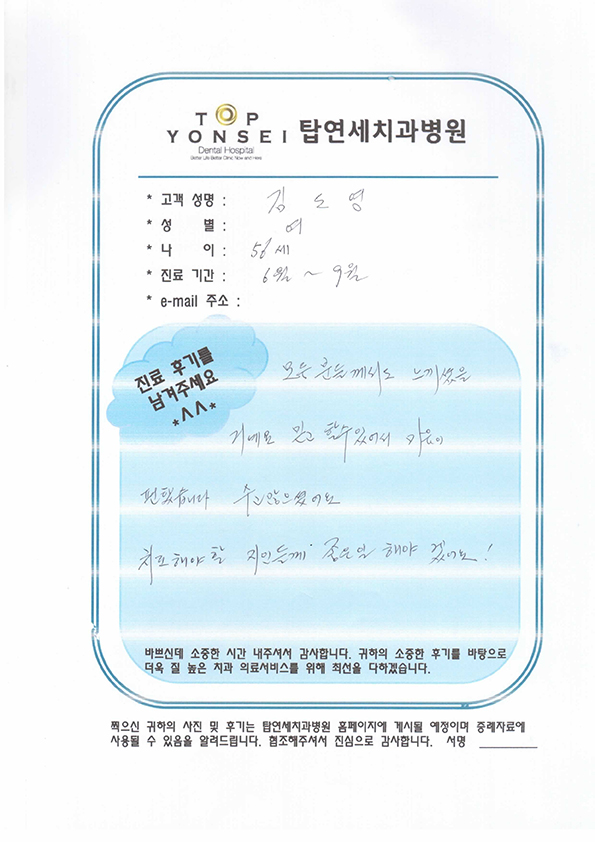 TOP
YONSEI 탑연세치과병원
Dental Hospital
Better Life Better Clinic Now and Here
* 고객 성명 : 김도영
* 성 별 : 여
* 나 이 : 56세
* 진료 기간 : 6월 ~ 9월
* e-mail 주소 :
진료 후기를
남겨주세요
*^^*
모든 분들께서도 느끼셨을
거예요 믿고 할수있어서 마음이
편했습니다 수고많으셨어요
치료해야할 지인들께 좋은일 해야 겠어요!
바쁘신데 소중한 시간 내주셔서 감사합니다. 귀하의 소중한 후기를 바탕으로
더욱 질 높은 치과 의료서비스를 위해 최선을 다하겠습니다.
찍으신 귀하의 사진 및 후기는 탑연세치과병원 홈페이지에 게시될 예정이며 증례자료에
사용될 수 있음을 알려드립니다. 협조해주셔서 진심으로 감사합니다. 서명